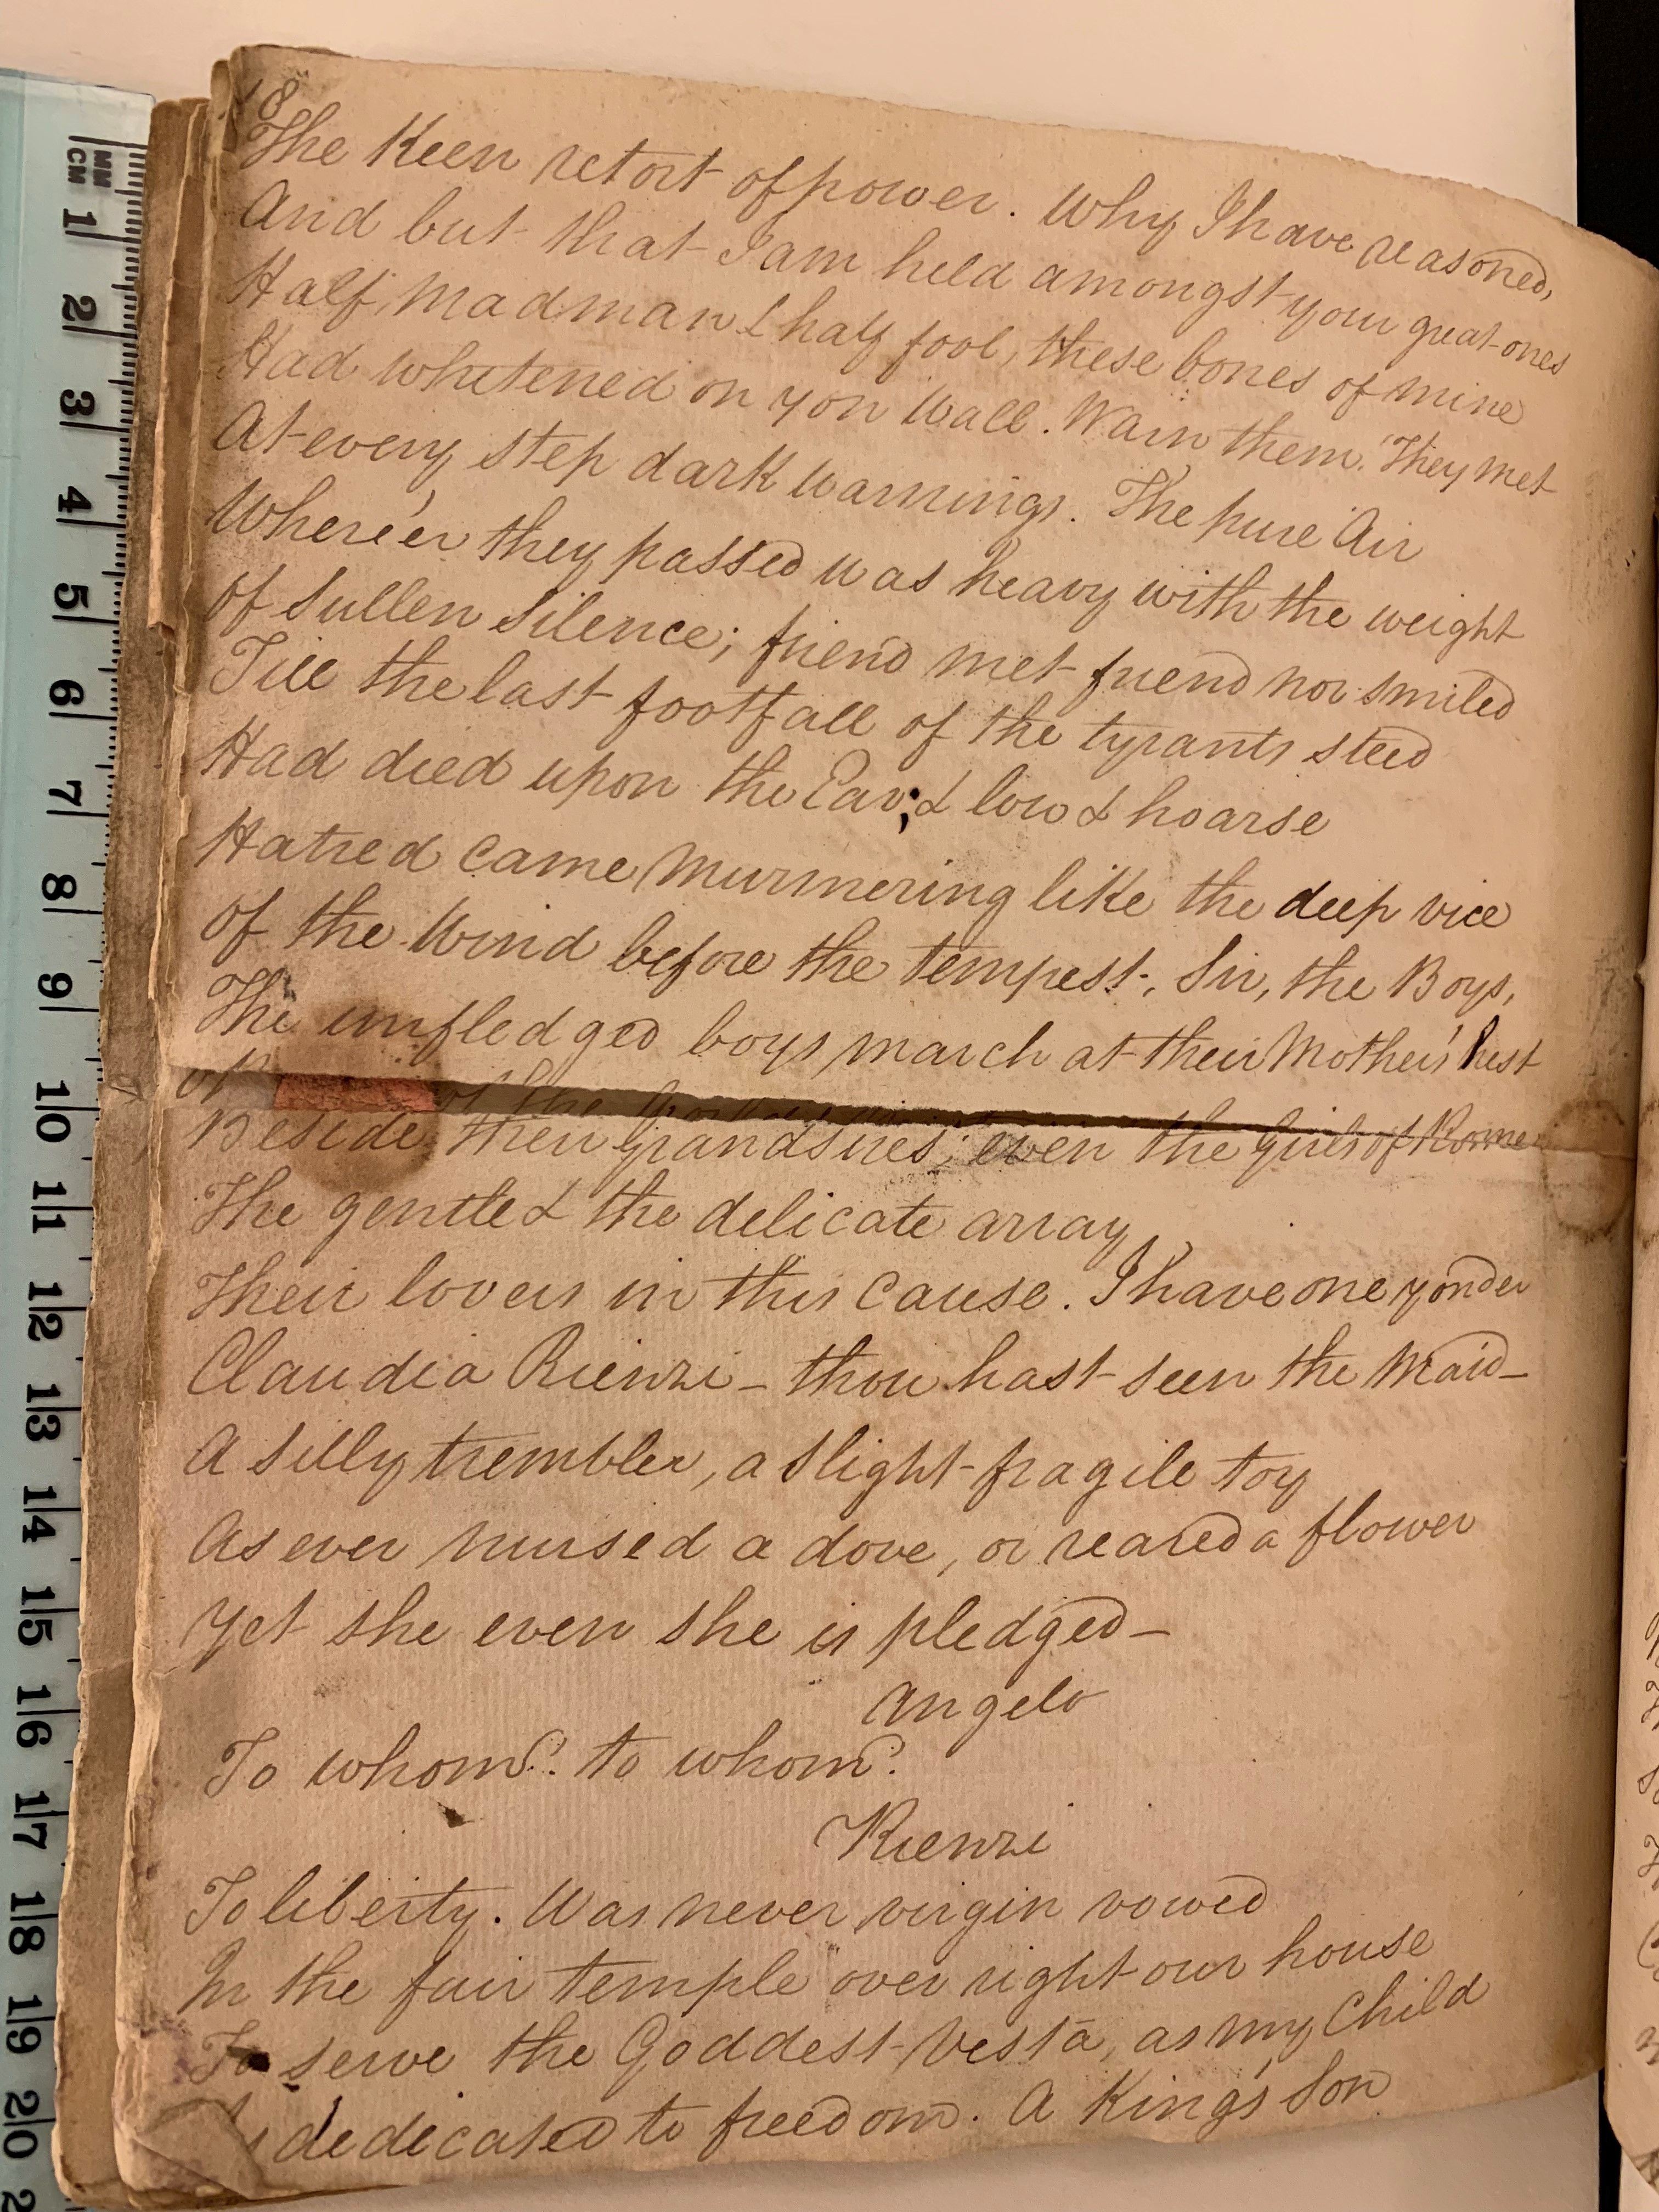 18
The Keen retort of power. Why I have reasoned,
And but that I am held amongst your great ones
Half Madman & half fool, these bones of mine
Had whitened on yon Wall. Warn them! They met
At every step dark warnings. The pure Air
Where'er they passed was heavy with the weight
Of Sullen Silence; friend met friend nor smiled
Till the last footfall of the tyrants steed
Had died upon the Ear; & low & hoarse
Hatred came Murmering like the deep vice
Of the Wind before the tempest. Sir, the Boys,
The unfledged boys march at their Mother's hest
Beside their Grandsires; even the Girls of Rome
The gentle & the delicate array
Their lovers in this cause. I have one yonder
Claudia Rienzi – thou hast seen the Maid –
A silly trembler, a slight fragile toy
As ever nursed a dove, or reared a flower
Yet she even she is pledged –
Angelo
To whom? to whom?
Rienzi
To liberty. Was never virgin vowed
In the fair temple over right our house
To serve the Goddest Vesta, as my Child
dedicated to freedom. A King's Son
MM
CM
1
2
3
4
5
6
7
8
9
10
11
12
13
14
15
16
17
18
19
20
2